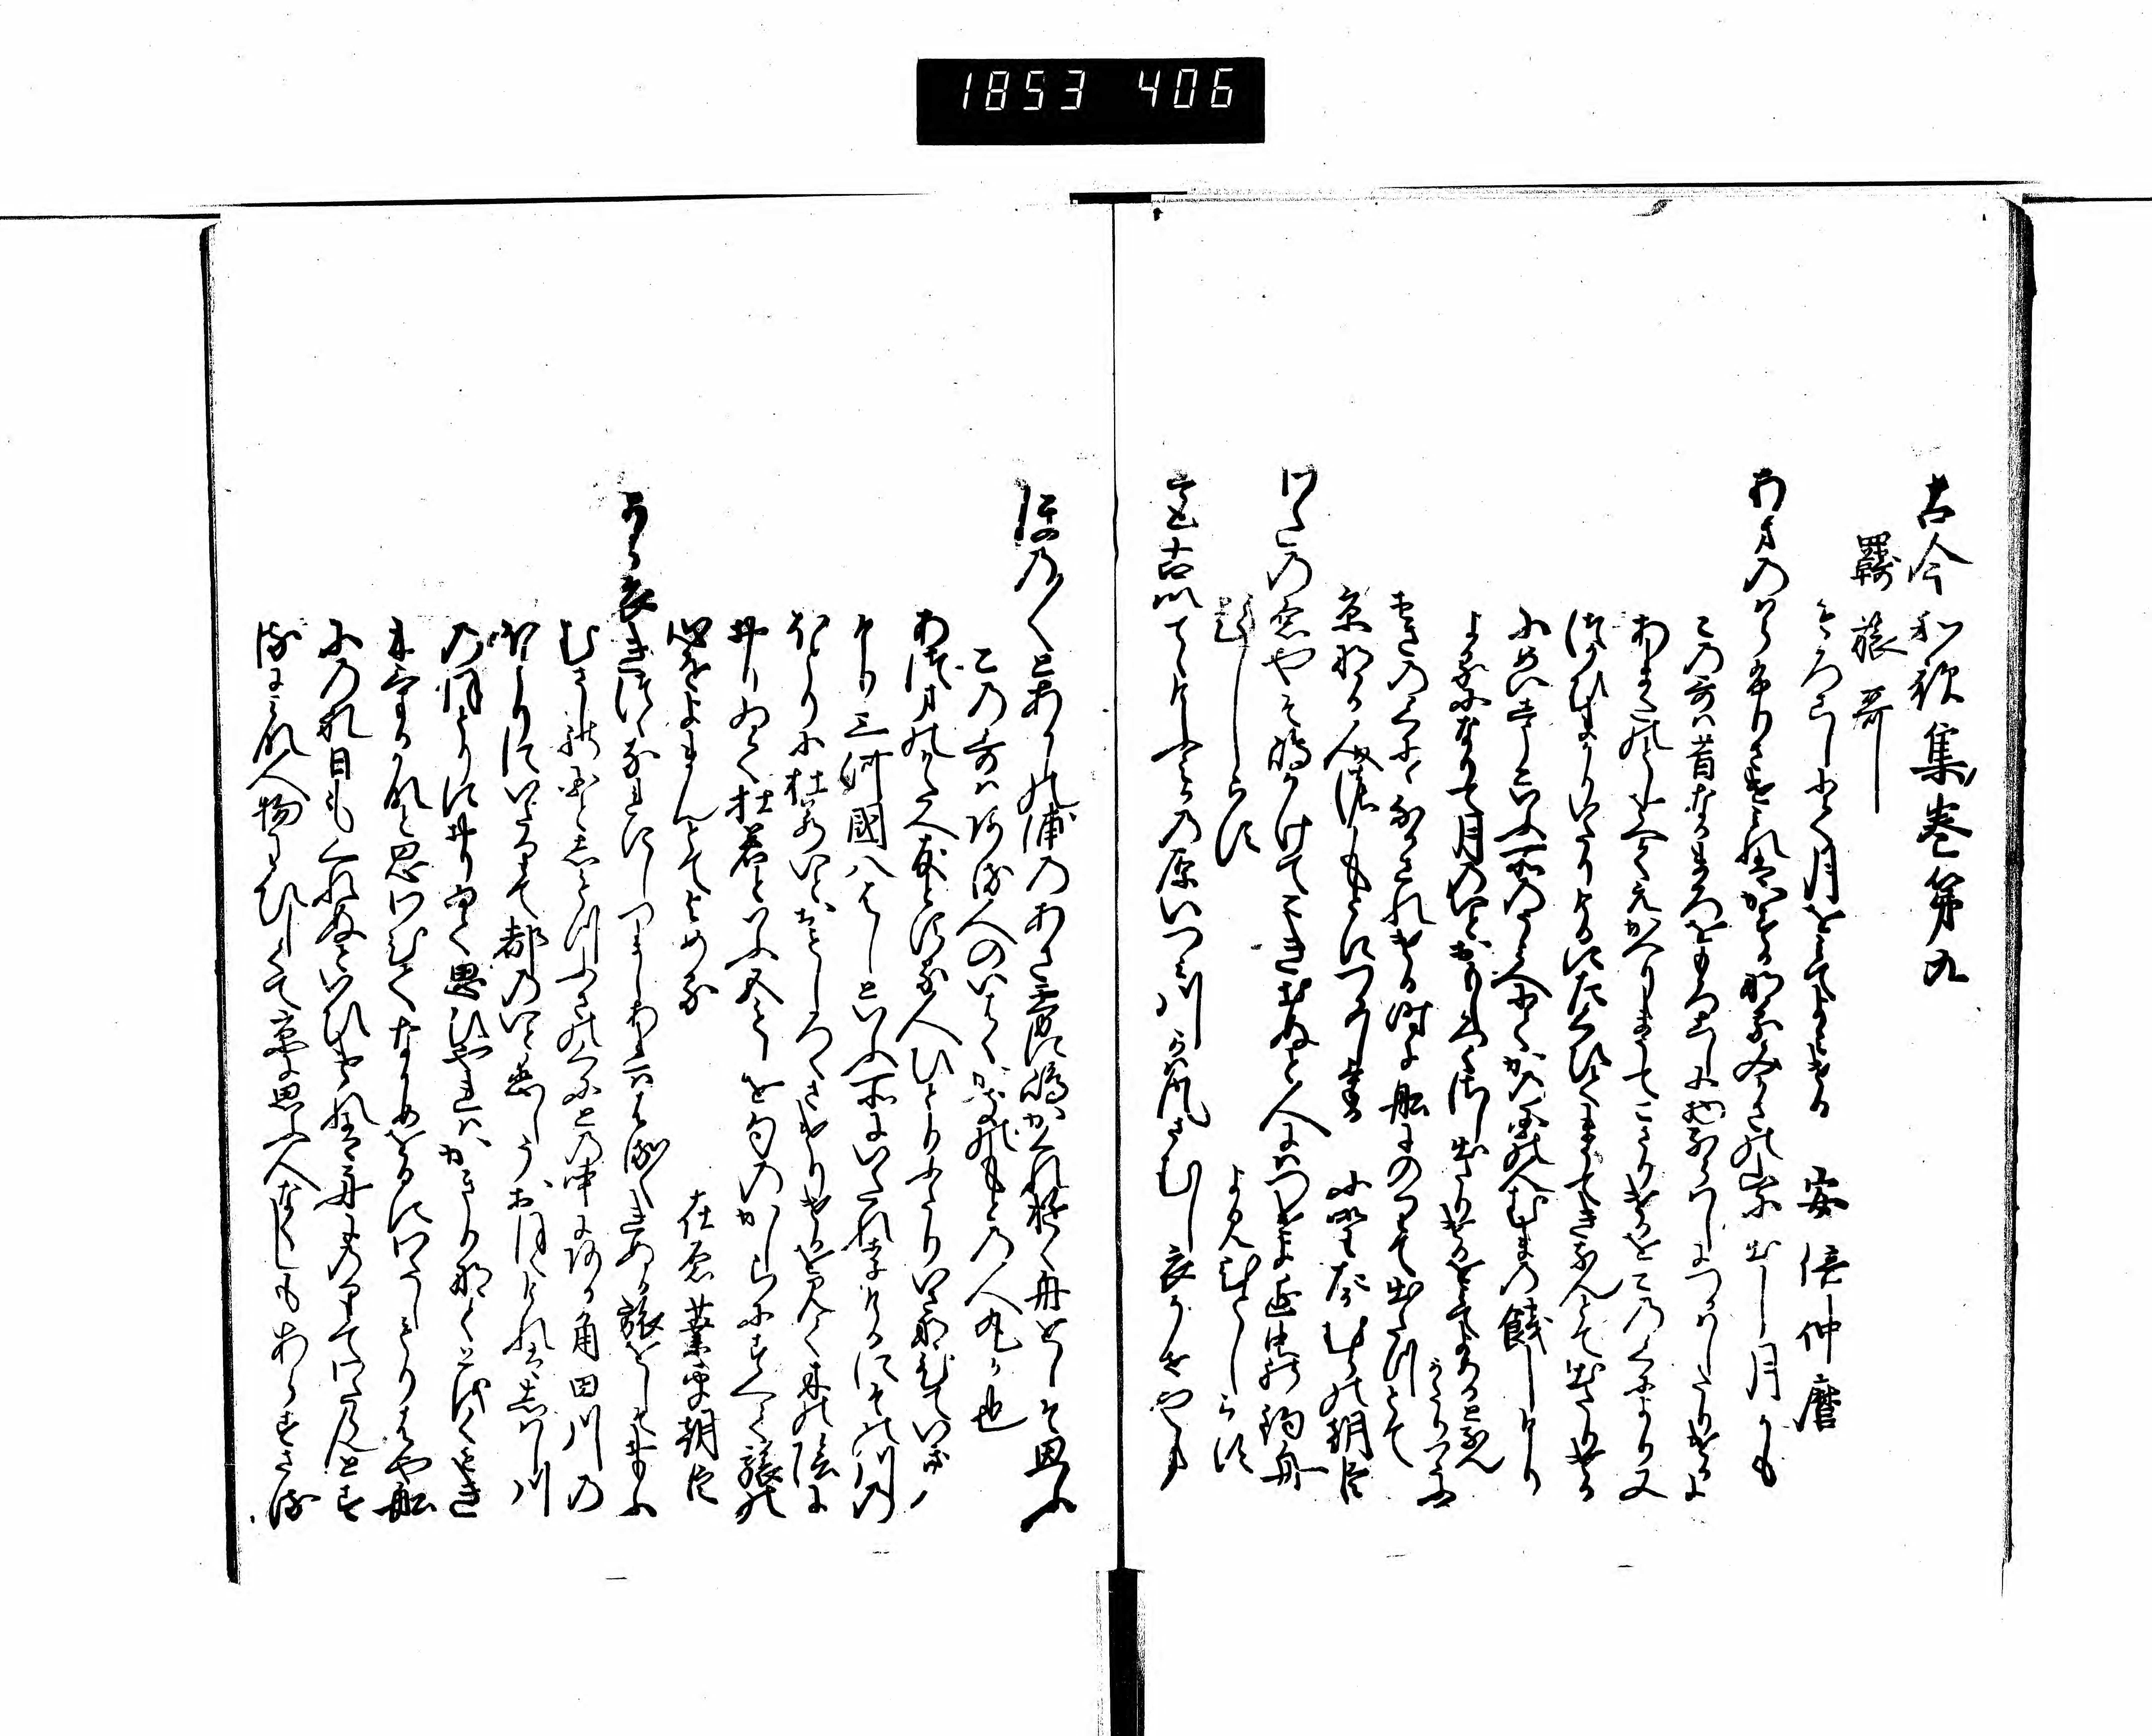 1853 406
古今和歌集巻第九
羇旅哥
もろこしにて月をみてよみける 安倍仲麿
あまのはらふりさけみれはかすかなるみかさの山に出し月かも
この哥は昔なかまろをもろこしに物ならはしにつかはしたりけるに
あまたのとしをへてえかへりまうてこさりけるをこの くにより又
つかひまかりいたりけるにたくひてまうてきなんとて出たりける
にめいしうといふ所のうみへにてかのくにの人むまの餞しけり
よるになりて月のいとおもしろくさし出たりけるをみてよめるとなん
かたりつたふ
おきのくにゝなかされける時に船にのりて出たつとて
京なる人のもとにつかはしける 小野たかむらの朝臣
わたの原やそ嶋かけてこき出ぬと人にはつけよ海士の釣舟
題しらす よみ人しらす
都出てけふみかの原いつみ川かはかせさむし衣かせやま
ほの／＼とあかしの浦のあさ霧に嶋かくれ行く舟をしそ思ふ
この哥はある人のいはくかきのもとの人丸か也
あつまのかたへ友とする人ひとりふたりいさなひていきけり
三河国八はしといふ所にいたれりけるにその川の
ほとりに杜若いとおもしろくさけりけるをみて木の陰に
おりゐて杜若といふ五もしを句のかしらにすへて旅の
心をよまんとてよめる 在原業平朝臣
から衣きつゝなれにしつましあれははる／＼きぬる旅をしそおもふ
むさしの国としもつふさの国との中にある角田川の
ほとりにいたりて都のいと恋しうおほえけれはしはし川
のほとりにおりゐて思ひやれはかきりなくとほくもき
にけるかなと思ひわひてなかめをるにわたしもりはや船
にのれ日もくれぬといひけれは舟にのりてわたらんとす
るにみな人物わひしくて京に思ふ人なくしもあらすさる